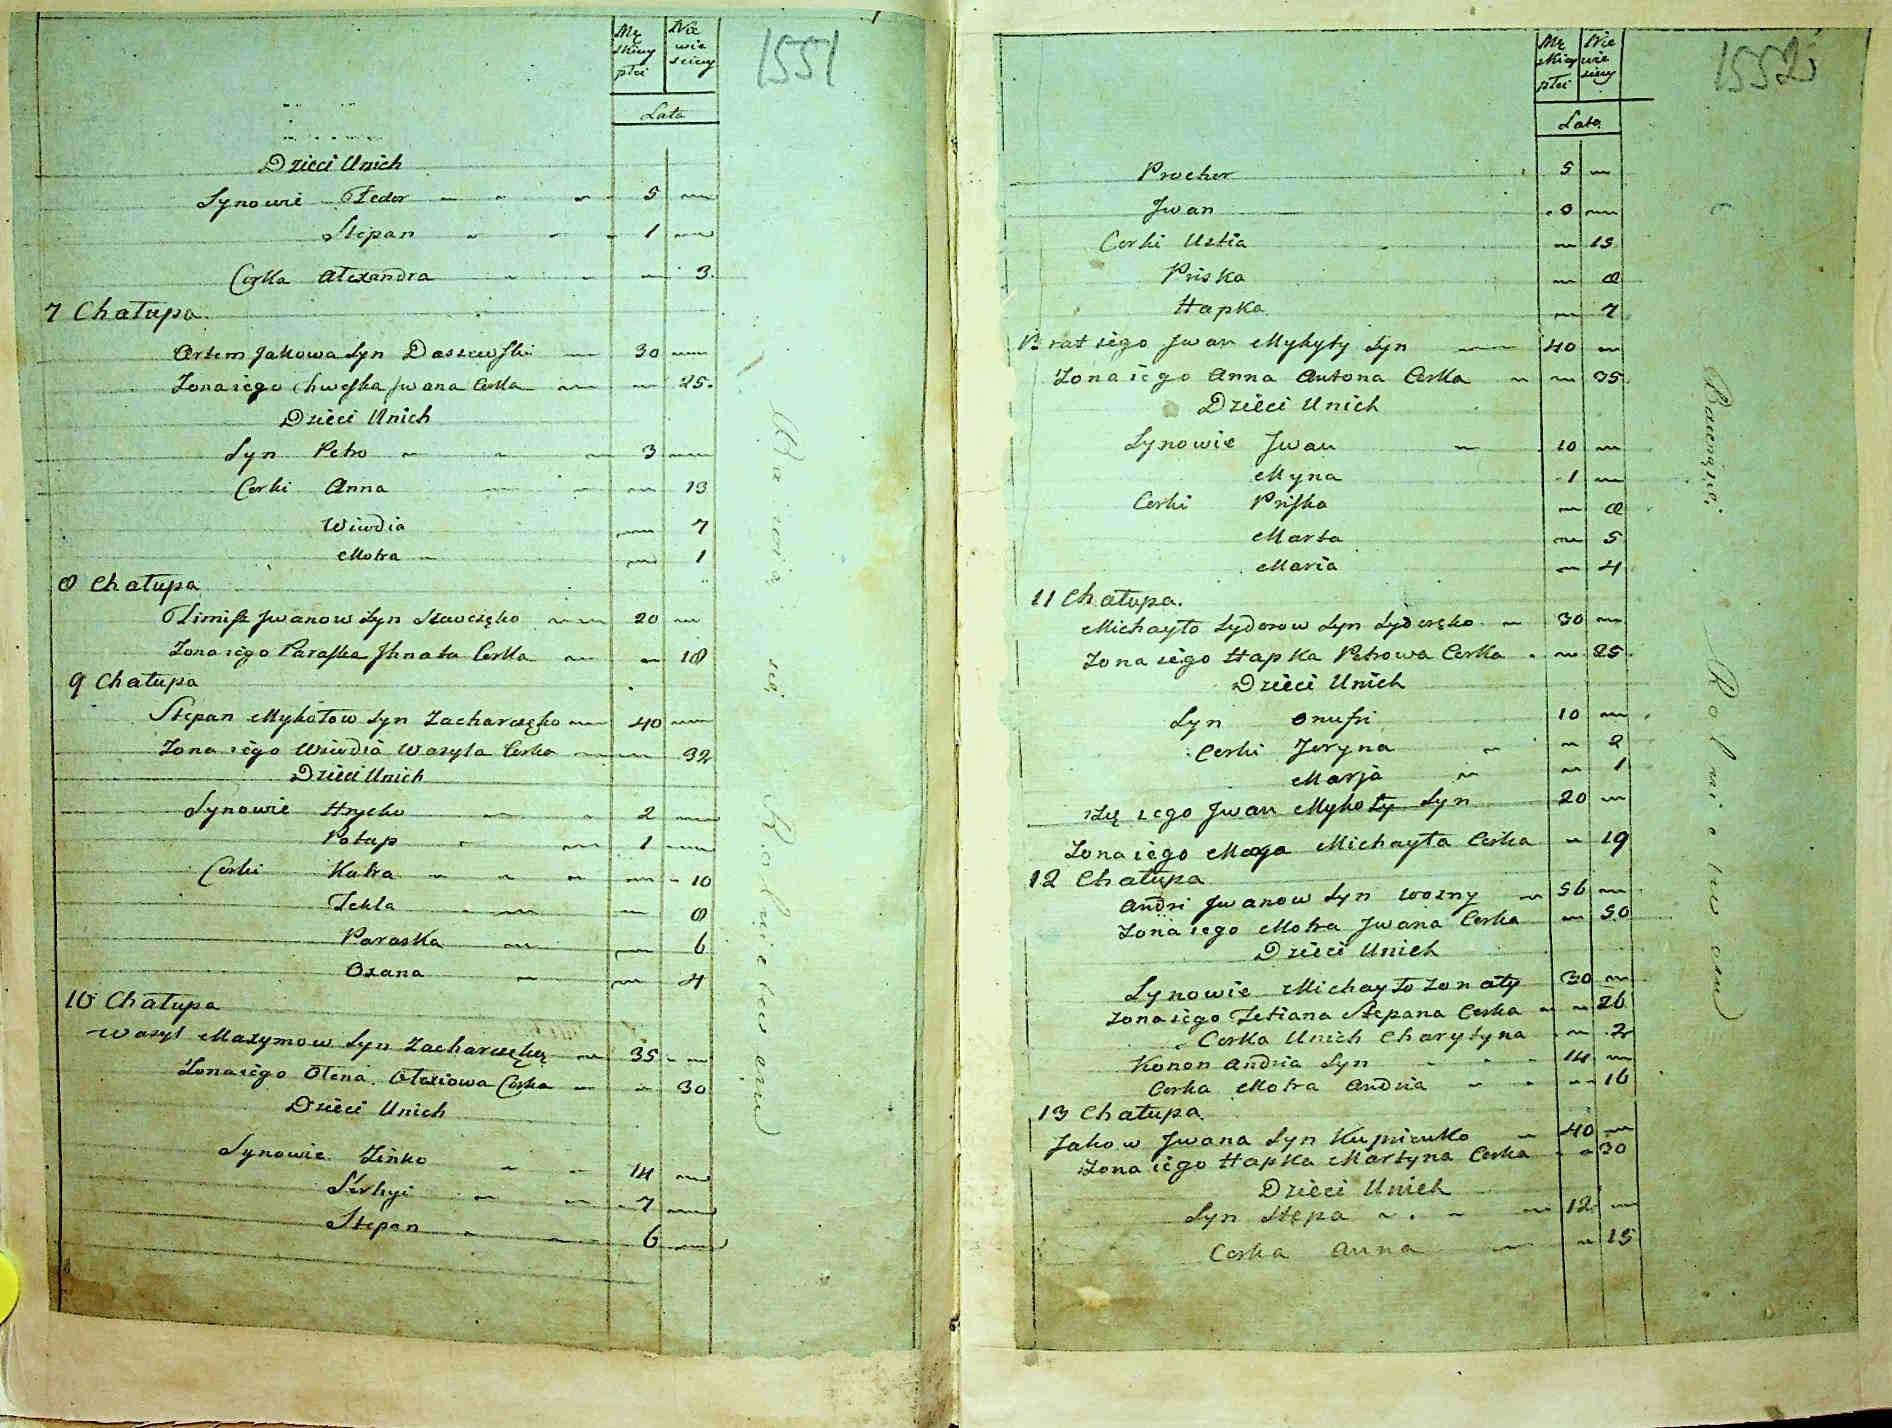 Mę Nie
skiey wie
płci sciey
1551
Lata
Dzieci Unich
Synowie Fedor 5
Stepan 1
Corka Alexandra 3
7 Chałupa
Artem Jakowa Syn Daszewski 30
Zona iego Chweska Jwana Corka 25
Dzieci Unich
Syn Petro 3
Corki Anna 13
Wiwdia 7
Motra 1
8 Chałupa
Timisz Jwanow Syn 20
Zona iego Paraska Jhnata Corka 18
9 Chałupa
Stepan Mykołow Syn Zacharczęko 40
Zona iego Wiwdia Wasyla Corka 32
Dzieci Unich
Synowie Hrycko 2
Potap 1
Corki Katra 10
Tekla 8
Paraska 6
Oxana 4
10 Chałupa
Wasyl Maxymow Syn 35
Zona iego Ołena Ołexiowa Corka 30
Dzieci Unich
Synowie Zinko 14
Serhyi 7
Stepan 6
Rolnictwem
Mę Nie
skiey wie
płci sciey
1552
Lata
Prochor 5
Jwan 3
Corki Ustia 15
Priska 8
Hapka 7
Brat iego Jwan Mykyty Syn 40
Zona iego Anna Antona Corka 35
Dzieci Unich
Synowie Jwan 10
Myna 1
Corki Priska 8
Marta 5
Maria 4
11 Chałupa
Michayło Sydorow Syn Sydoręko 30
Zona iego Hapka Petrowa Corka 25
Dzieci Unich
Syn Onufri 10
Corki Jaryna 2
Marja 1
iego Jwan Mykoły Syn 20
Zona iego Michayła Corka 19
12 Chałupa
Andri Jwanow Syn Wozny 56
Zona iego Motra Jwana Corka 50
Dzieci Unich
Synowie Michayło Zonaty 30
Zona iego Tetiana Stepana Corka 26
Corka Unich Charytyna 2
Konon Andria Syn 14
Corka Motra Andria 16
13 Chałupa
Jakow Jwana Syn Kuprienko 40
Zona iego Hapka Martyna Corka 30
Dzieci Unich
Syn Stępa 12
Corka Anna 15
Rolnictwem